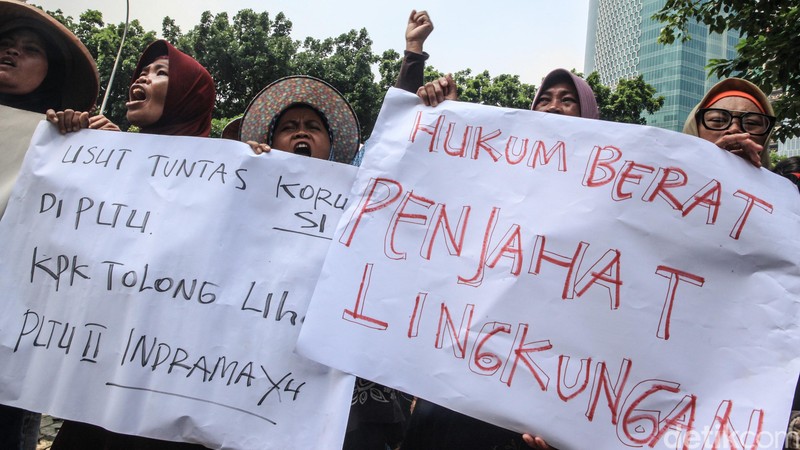 USUT TUNTAS KORU
SI
DI PLTU.
KPK TOLONG LIH
PLTU II INDRAMAYU
HUKUM BERAT
PENJAHAT
LINGKUNGAN
detikcom